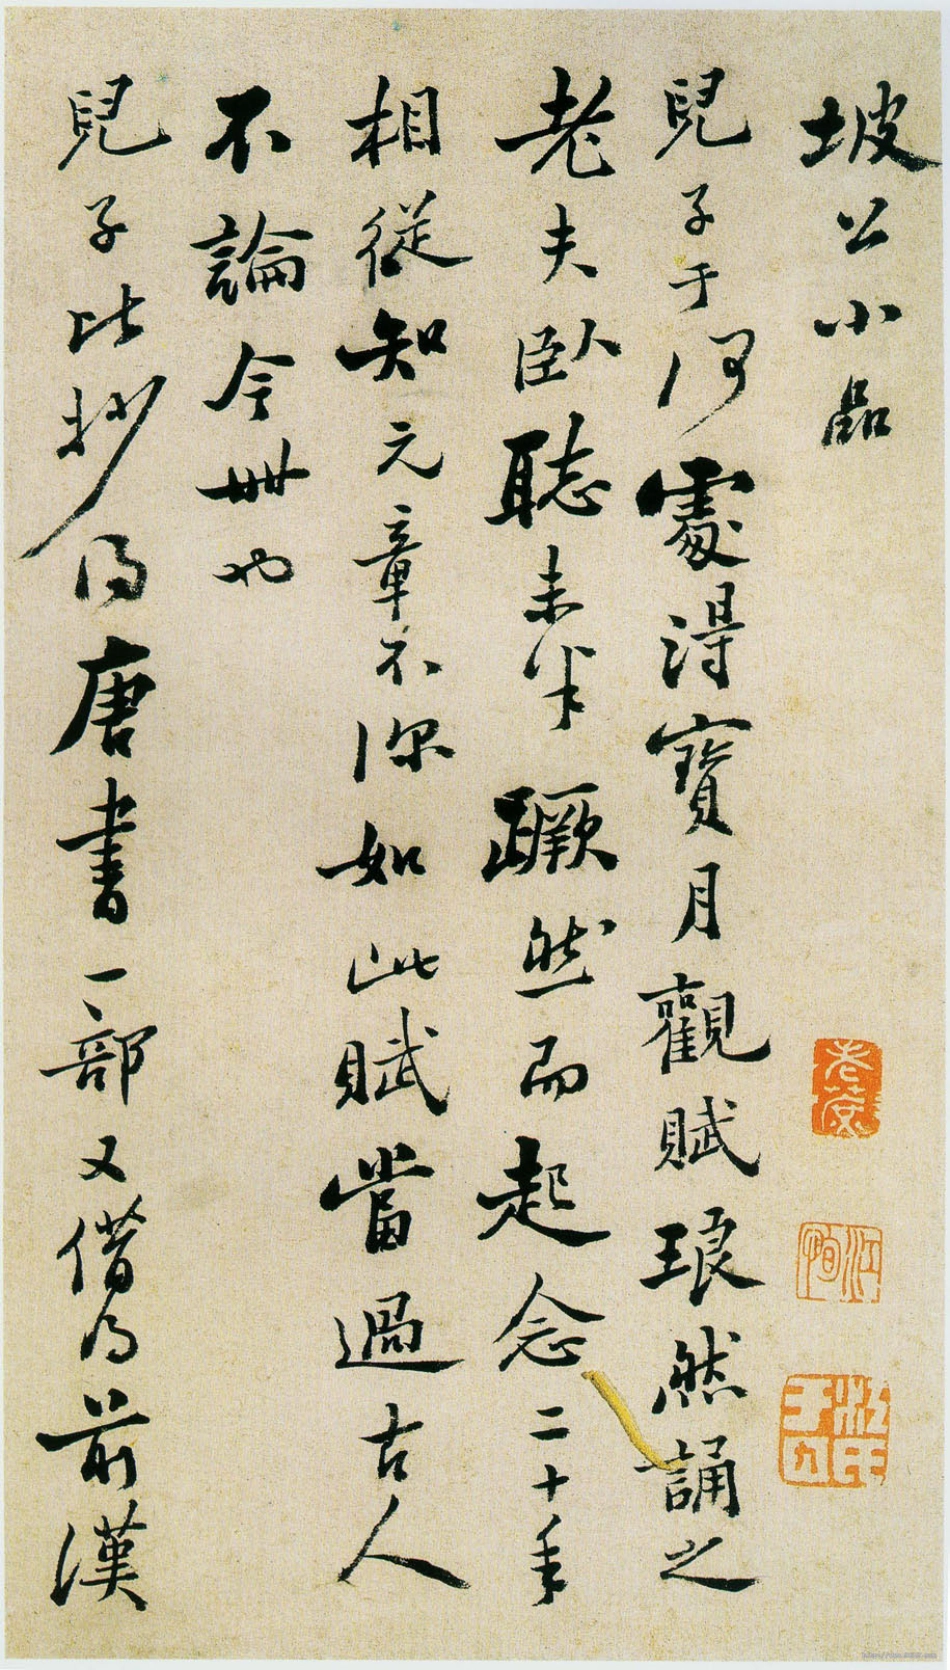 坡公小品
兒子于何處得寶月觀賦琅然誦之
老夫臥聽未半蹶然而起念二十年
相從知元章不深如此賦當過古人
不論今世也
兒子比抄得唐書一部又借得前漢
江恂
江氏于九